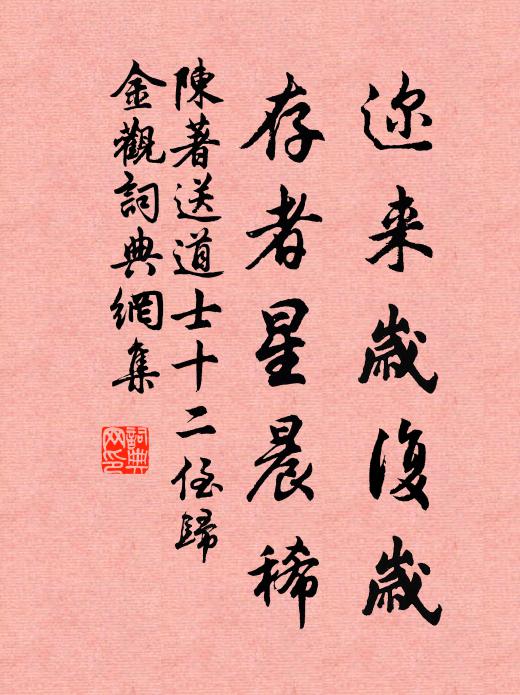 迩来歳復歳
存者星晨稀
陳著送道士十二侄歸
金觀詞典網集
詞典網印